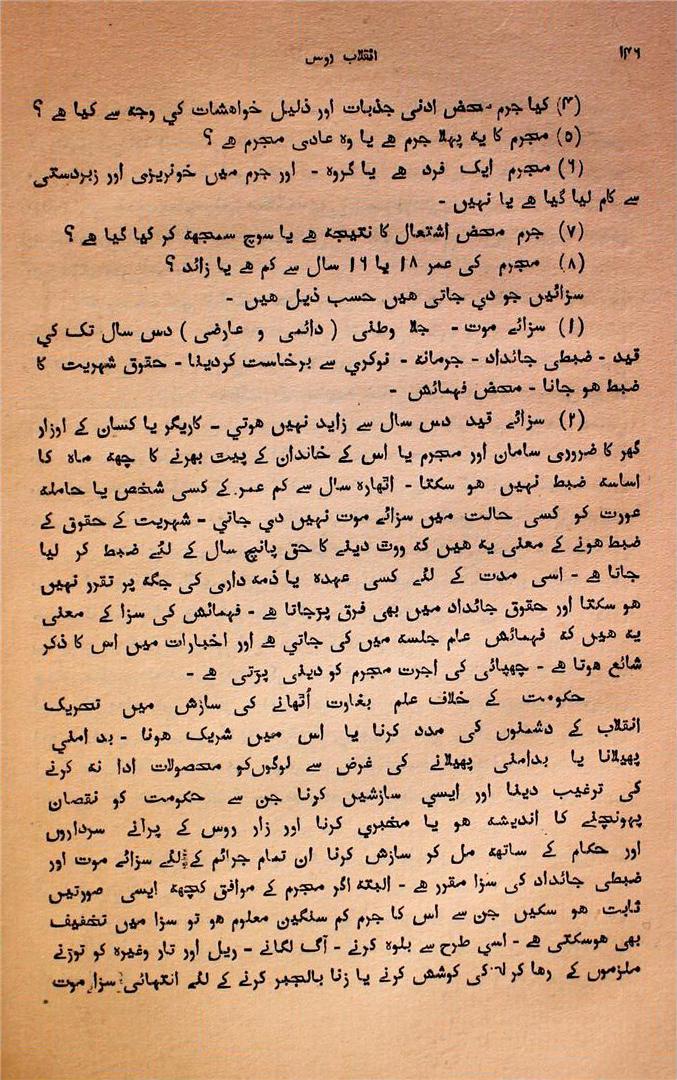 ۱۴۶
انقلاب روس
(۴) کیا جرم محض ادنی جذبات اور ذلیل خواهشات کي وجه سے کیا هے ؟
(۵) مجرم کا یه پہلا جرم هے یا وہ عادی مجرم هے ؟
(۶) مجرم ایک فرد هے یا گروہ - اور جرم میں خونریزی اور زبردستی
سے کام لیا گیا هے یا نہیں -
(۷) جرم محض اشتعال کا نتیجه هے یا سوچ سمجهه کر کیا گیا هے ؟
(۸) مجرم کی عمر ۱۸ یا ۱۶ سال سے کم هے یا زائد ؟
سزائیں جو دي جاتی هیں حسب ذیل هیں -
(۱) سزائے موت - جلا وطنی ( دائمی و عارضی ) دس سال تک کي
قید - ضبطی جائداد - جرمانه - نوکري سے برخاست کردینا - حقوق شہریت کا
ضبط هو جانا - محض فہمائش -
(۲) سزائے قید دس سال سے زاید نہیں هوتي - کاریگر یا کسان کے اوزار
گھر کا ضروری سامان اور مجرم یا اس کے خاندان کے پیٹ بھرنے کا چهه ماہ کا
اساسه ضبط نہیں هو سکتا - اٹھارہ سال سے کم عمر کے کسی شخص یا حامله
عورت کو کسی حالت میں سزائے موت نہیں دی جاتي - شہریت کے حقوق کے
ضبط هونے کے معنی یه هیں که ووٹ دینے کا حق پانچ سال کے لئے ضبط کر لیا
جاتا هے - اسی مدت کے لئے کسی عہدہ یا ذمه داری کی جگه پر تقرر نہیں
هو سکتا اور حقوق جائداد میں بھی فرق پڑجاتا هے - فہمائش کی سزا کے معنی
یه هیں که فہمائش عام جلسه میں کی جاتي هے اور اخبارات میں اس کا ذکر
شائع هوتا هے - چھپائی کی اجرت مجرم کو دینی پڑتی هے -
حکومت کے خلاف علم بغاوت اُٹھانے کی سازش میں تحریک
انقلاب کے دشمنوں کی مدد کرنا یا اس میں شریک هونا - بد امني
پھیلانا یا بدامنی پھیلانے کی غرض سے لوگوں کو محصولات ادا نه کرنے
کی ترغیب دینا اور ایسي سازشیں کرنا جن سے حکومت کو نقصان
پہونچنے کا اندیشه هو یا مخبري کرنا اور زار روس کے پرانے سرداروں
اور حکام کے ساتهه مل کر سازش کرنا ان تمام جرائم کے لئے سزائے موت اور
ضبطی جائداد کی سزا مقرر هے - البته اگر مجرم کے موافق کچهه ایسی صورتیں
ثابت هو سکیں جن سے اس کا جرم کم سنگین معلوم هو تو سزا میں تخفیف
بھی هوسکتی هے - اسي طرح سے بلوہ کرنے - آگ لگانے - ریل اور تار وغیرہ کو توڑنے
ملزموں کے رها کرانے کی کوشش کرنے یا زنا بالجبر کرنے کے لئے انتہائی سزا موت